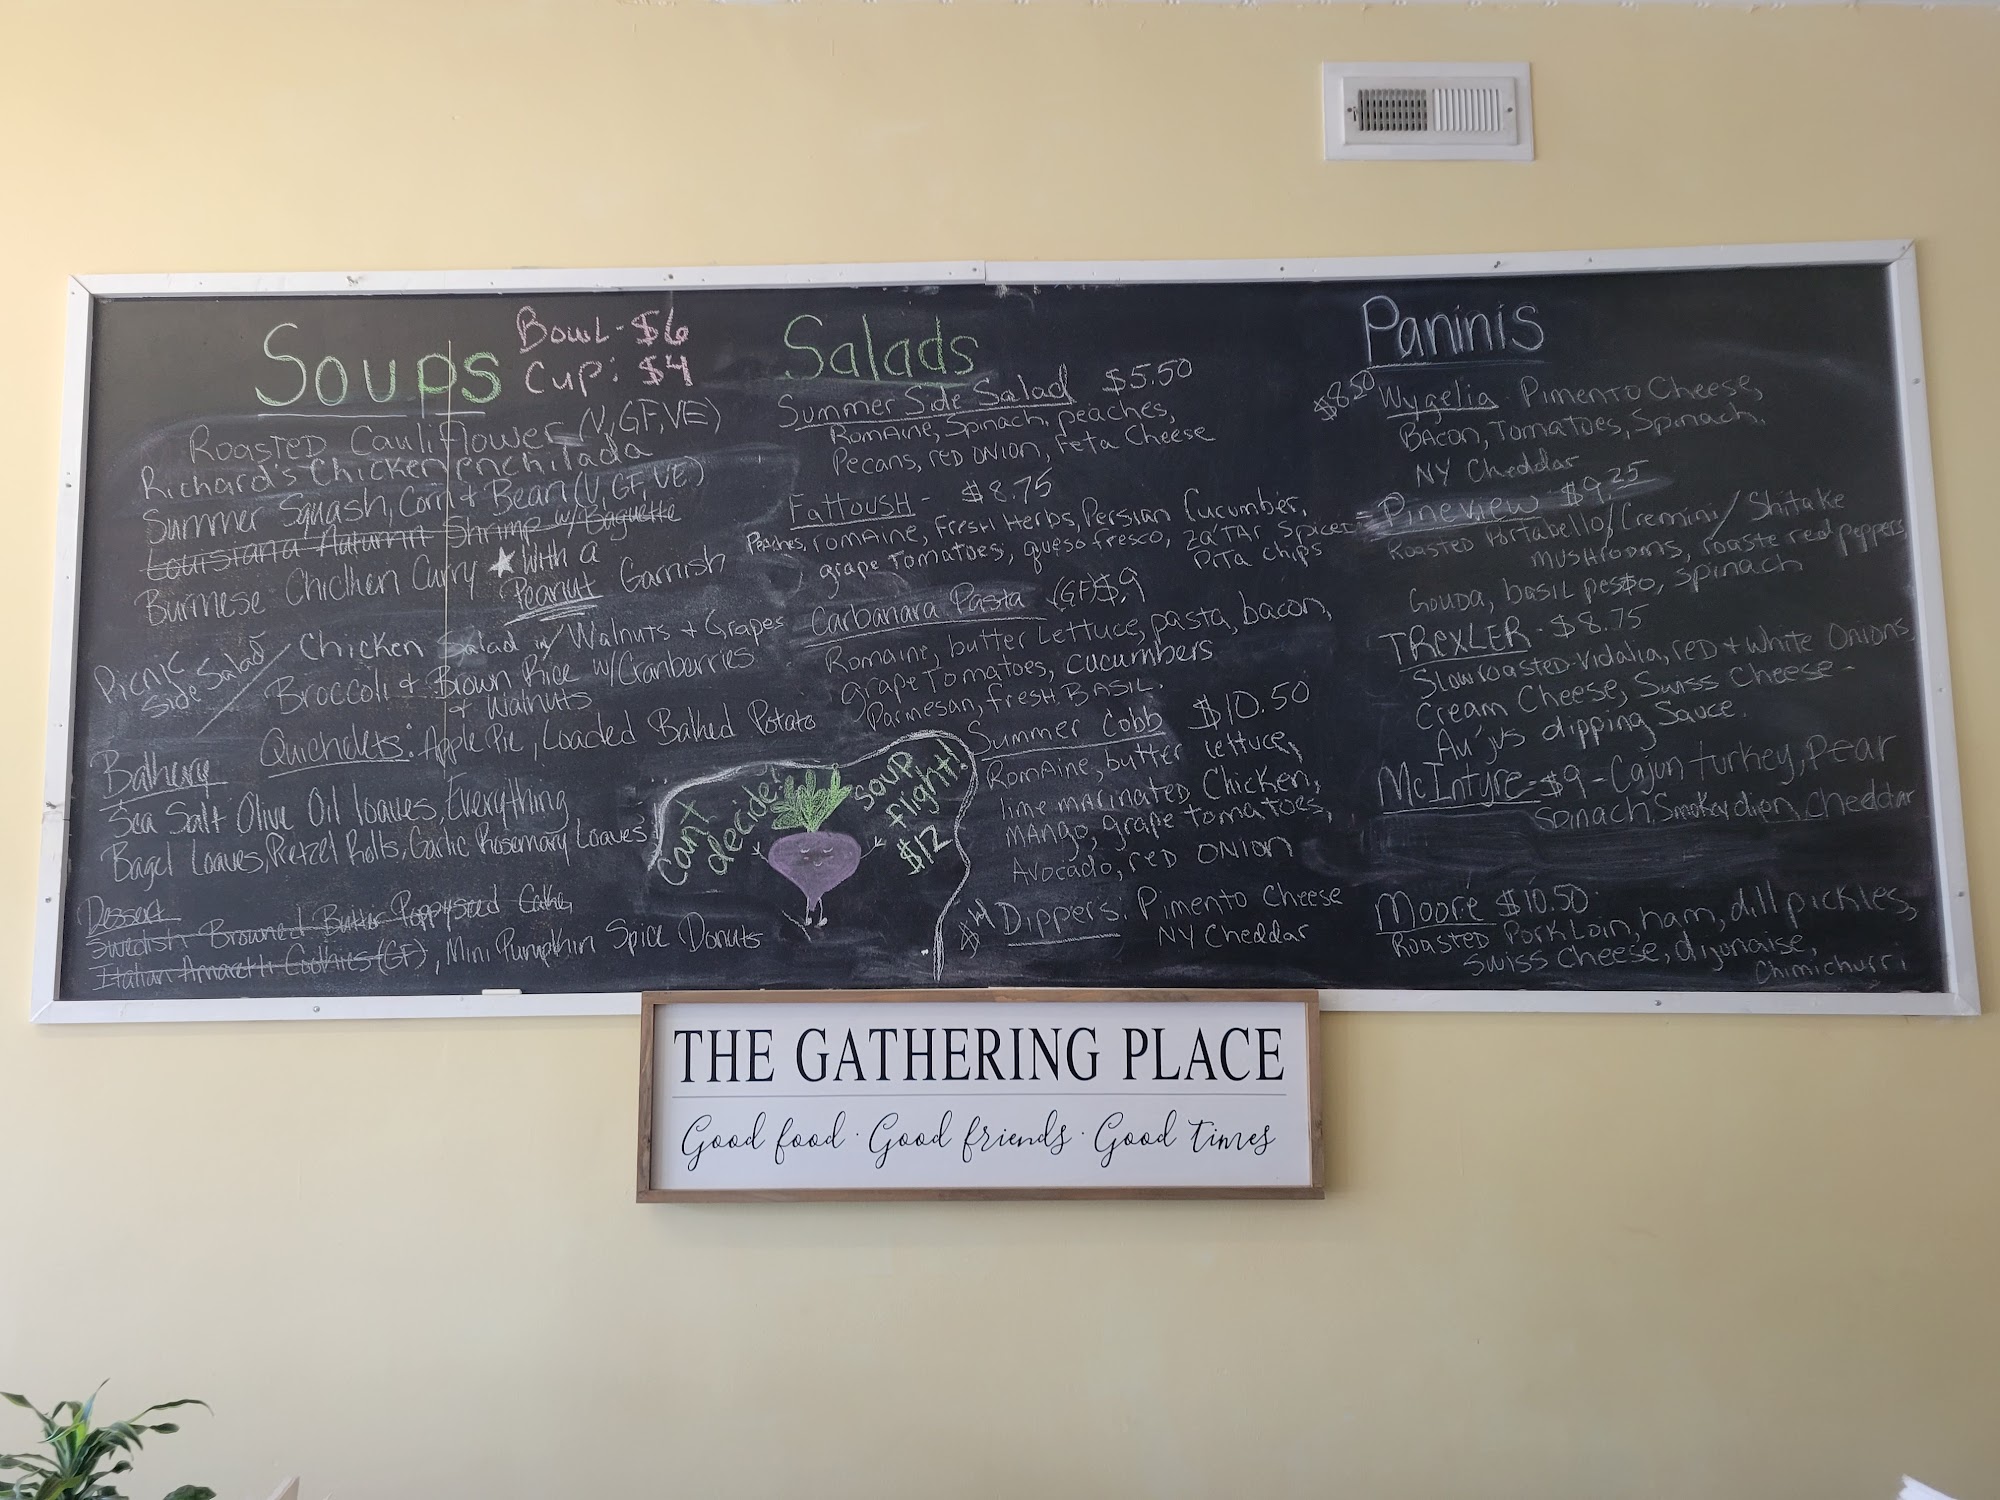 Soups
Bowl-$6
Cup: $4
Roasted Cauliflower (V,GF,VE)
Richard's Chicken enchilada
Summer Squash, Corn & Bean (V, GF, VE)
Louisiana Autumn Shrimp w/ Baguette
Burmese Chicken Curry ★ With a
Peanut Garnish
Picnic
Side Salad
Chicken Salad w/ Walnuts + Grapes
Broccoli & Brown Rice w/Cranberries
+ Walnuts
Quichelets: Apple Pie, Loaded Baked Potato
Bakery
Sea Salt Olive Oil loaves, Everything
Bagel Loaves, Pretzel Rolls, Garlic Rosemary Loaves
Dessert
Swedish Browned Butter Poppyseed Cake,
Italian Amaretti Cookies (GF), Mini Pumpkin Spice Donuts
Can't
decide?
Soup
flight!
$12
Salads
Summer Side Salad $5.50
Romaine, Spinach, peaches,
Pecans, red onion, Feta Cheese
Fattoush - $8.75
Peaches, romaine, Fresh Herbs, Persian Cucumber,
grape Tomatoes, queso fresco, za'tar spices
Pita chips
Carbanara Pasta (GF) $9
Romaine, butter Lettuce, pasta, bacon,
grape Tomatoes, cucumbers
Parmesan, fresh Basil.
Summer Cobb $10.50
Romaine, butter lettuce,
lime marinated Chicken,
mango, grape tomatoes,
Avocado, red onion
Dippers: Pimento Cheese
NY Cheddar
Paninis
$8.50 Wygelia - Pimento Cheese,
Bacon, Tomatoes, Spinach,
NY Cheddar
Pineview - $9.25
Roasted Portabello/Cremini/Shitake
mushrooms, roaste red peppers
Gouda, basil pesto, spinach
Trexler - $8.75
Slow roasted-Vidalia, red + White Onions,
Cream Cheese, Swiss Cheese -
Au'jus dipping Sauce.
McIntyre - $9 - Cajun turkey, pear
Spinach, Smokey dijon, cheddar
Moore $10.50
Roasted Pork Loin, ham, dill pickles,
Swiss Cheese, dijonaise,
Chimichurri
THE GATHERING PLACE
Good food · Good friends · Good times